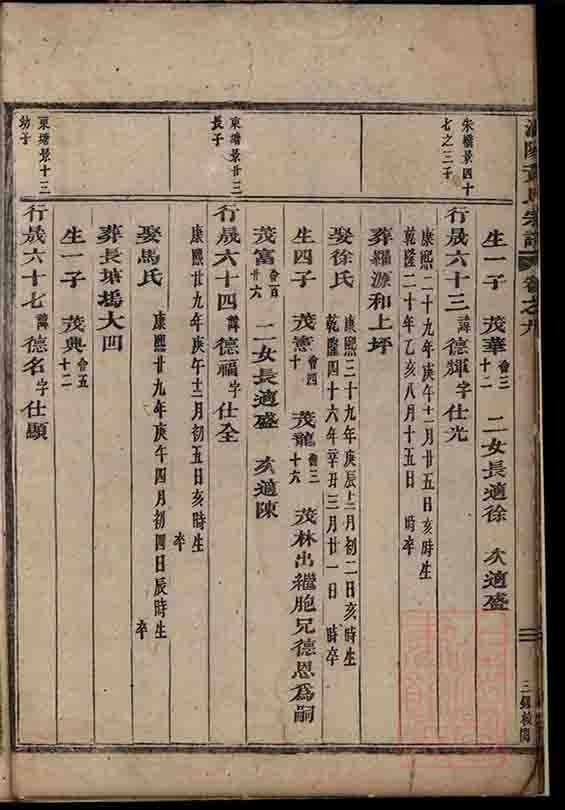 宗譜 卷之九
生一子 茂華 會三十二 二女長適徐 次適盛
朱橋景四十七之三子
行晟六十三 諱德輝字仕光
康熙二十九年庚午十二月廿五日亥時生
乾隆二十年乙亥八月十五日 時卒
葬羅源和上坪
娶徐氏 康熙三十九年庚辰十二月初二日亥時生
乾隆四十六年辛丑三月廿一日 時卒
生四子 茂憲 會四十 茂龍 會三十六 茂林出繼胞兄德恩為嗣
茂富 會百廿六 二女長適盛 次適陳
東塘景廿三長子
行晟六十四 諱德福字仕全
康熙廿九年庚午十二月初五日亥時生
卒
娶馬氏 康熙廿九年庚午四月初四日辰時生
卒
葬長塘塢大凹
生一子 茂興 會五十二
東塘景十三幼子
行晟六十七 諱德名字仕顯